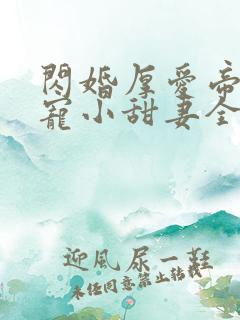 閃婚厚愛帝
寵小甜妻全
迎風尿一鞋
未經同意禁止轉載